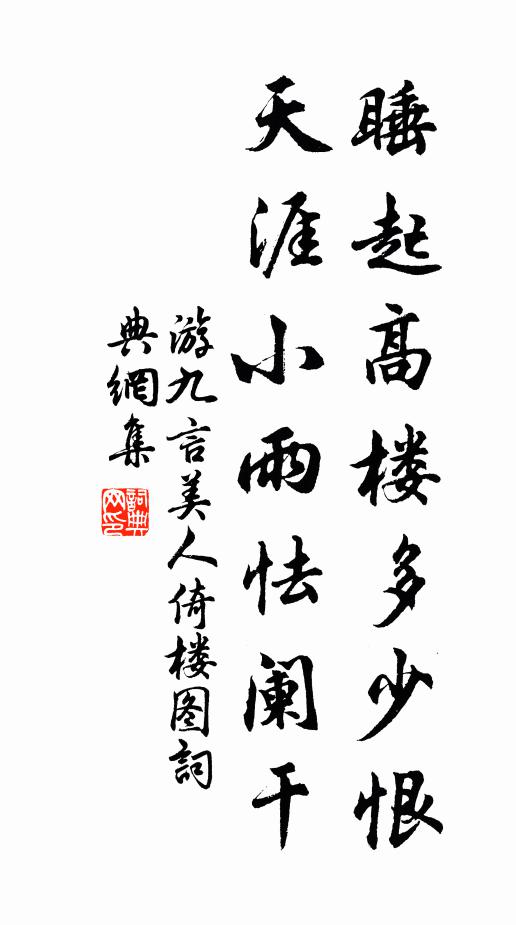 睡起高楼多少恨
天涯小雨怯阑干
游九言美人倚楼图詞
典網集
詞典网印